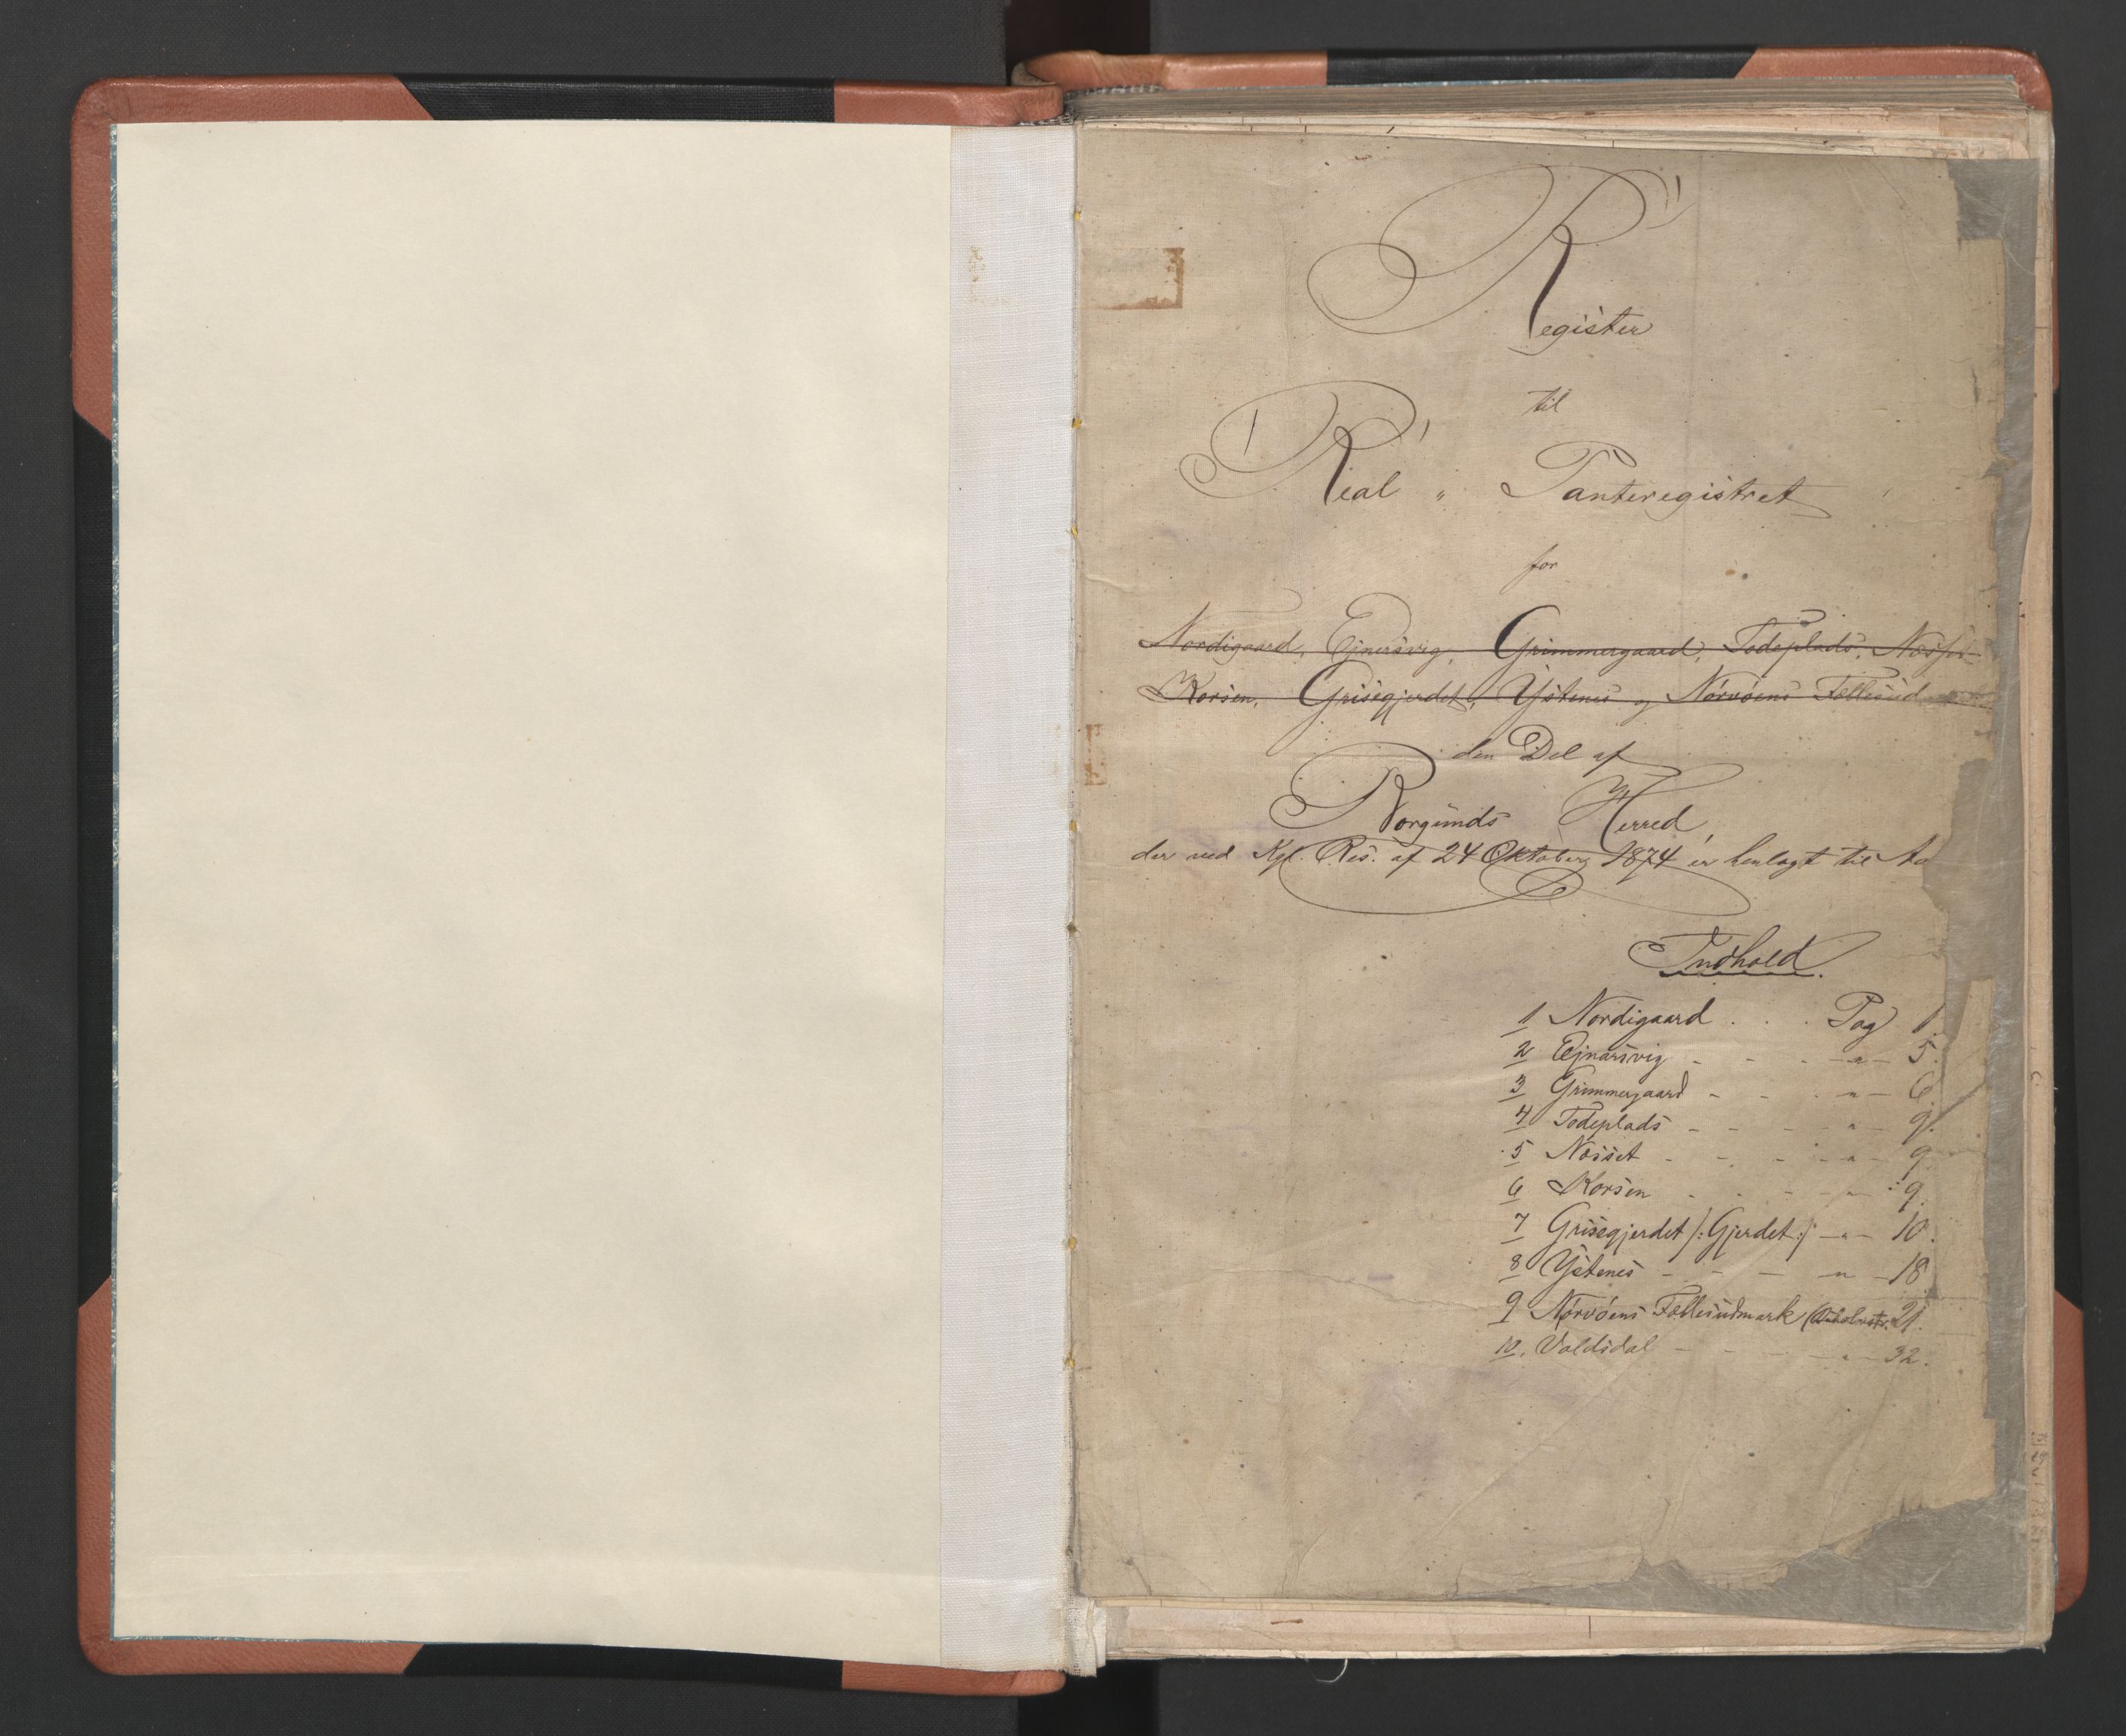 Register
til
Real " Panteregistret
for
Nordigaard, Ejnersvig, Grimmergaard, Todeplads, Næsset
Korsen, Grisegjerdet, Ystenes og Nørvøens Fællesud
den Del af
Borgunds Herred,
der ved Kgl. Res. af 24 Oktober 1874 er henlagt til Aa
Indhold.
1 Nordigaard . . . Pag 1.
2 Ejnarsvig - - - -"- 5.
3 Grimmergaard - - . -"- 6.
4 Todeplads - - - - -"- 9.
5 Næsset - - - - -"- 9.
6 Korsen - - - -"- 9.
7 Grisegjerdet /: Gjerdet :/ -"- 10.
8 Ystenes - - - -"- 18
9 Nørvøens Fællesudmark 21.
10. Valdsdal - - - - -"- 32.